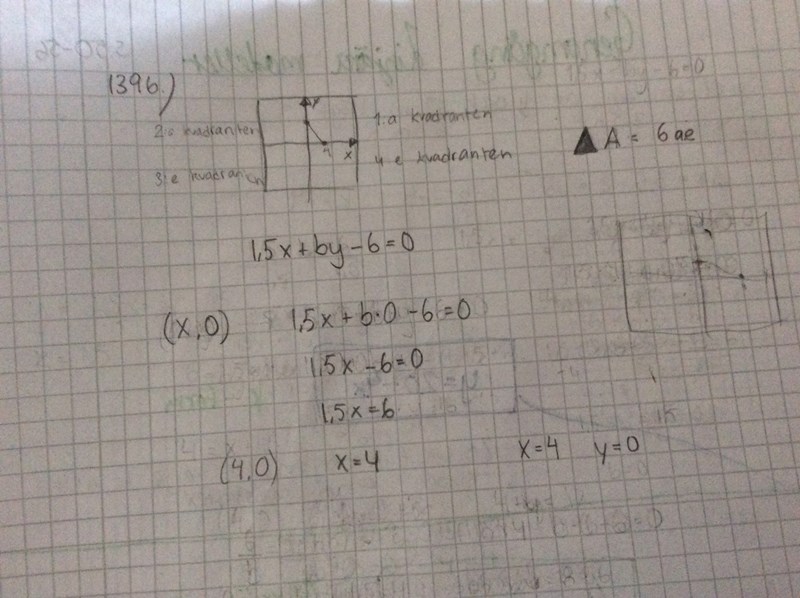 1396)
y
2:a kvadranten
1:a kvadranten
x
4:e kvadranten
3:e kvadranten
A = 6 ae
1,5x+by-6=0
(x,0) 1,5x+b·0-6=0
1,5x-6=0
1,5x=6
(4,0) x=4 x=4 y=0